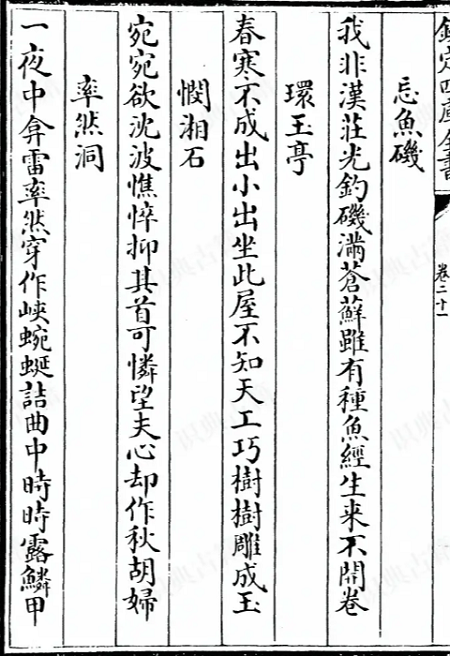 欽定四庫全書
卷二十一
忘魚磯
我非漢莊光釣磯滿蒼蘚雖有種魚經生來不開卷
環玉亭
春寒不成出小出坐此屋不知天工巧樹樹雕成玉
憫湘石
宛宛欲沈波憔悴抑其首可憐望夫心却作秋胡婦
率然洞
一夜中弇雷率然穿作峽蜿蜒詰曲中時時露鱗甲